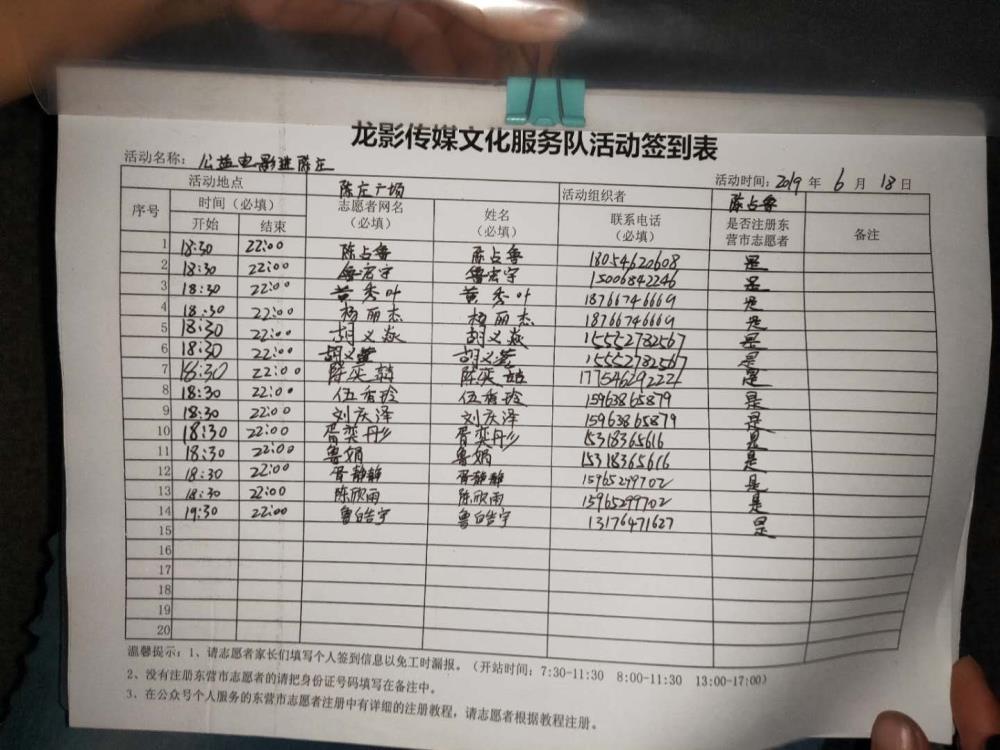 龙影传媒文化服务队活动签到表
活动名称：公益电影进陈庄
活动时间：2019 年 6 月 18 日
活动地点 陈庄广场 活动组织者 陈占鲁
序号 时间（必填） 志愿者网名（必填） 姓名（必填） 联系电话（必填） 是否注册东营市志愿者 备注
开始 结束
1 18:30 22:00 陈占鲁 陈占鲁 18054620608 是
2 18:30 22:00 鲁宏宇 鲁宏宇 15006842246 是
3 18:30 22:00 黄秀叶 黄秀叶 18766746669 是
4 18:30 22:00 杨丽杰 杨丽杰 18766746669 是
5 18:30 22:00 胡义焱 胡义焱 15552782567 是
6 18:30 22:00 胡义萱 胡义萱 15552782567 是
7 18:30 22:00 陈奕 陈奕 17754629222 是
8 18:30 22:00 伍香玲 伍香玲 15963865879 是
9 18:30 22:00 刘庆泽 刘庆泽 15963865879 是
10 18:30 22:00 胥奕彤 胥奕彤 15318365616 是
11 18:30 22:00 鲁娟 鲁娟 15318365616 是
12 18:30 22:00 胥静静 胥静静 15965299702 是
13 18:30 22:00 陈欣雨 陈欣雨 15965299702 是
14 19:30 22:00 鲁皓宇 鲁皓宇 13176471627 是
15
16
17
18
19
20
温馨提示：1、请志愿者家长们填写个人签到信息以免工时漏报。（开站时间：7:30-11:30 8:00-11:30 13:00-17:00）
2、没有注册东营市志愿者的请把身份证号码填写在备注中。
3、在公众号个人服务的东营市志愿者注册中有详细的注册教程，请志愿者根据教程注册。